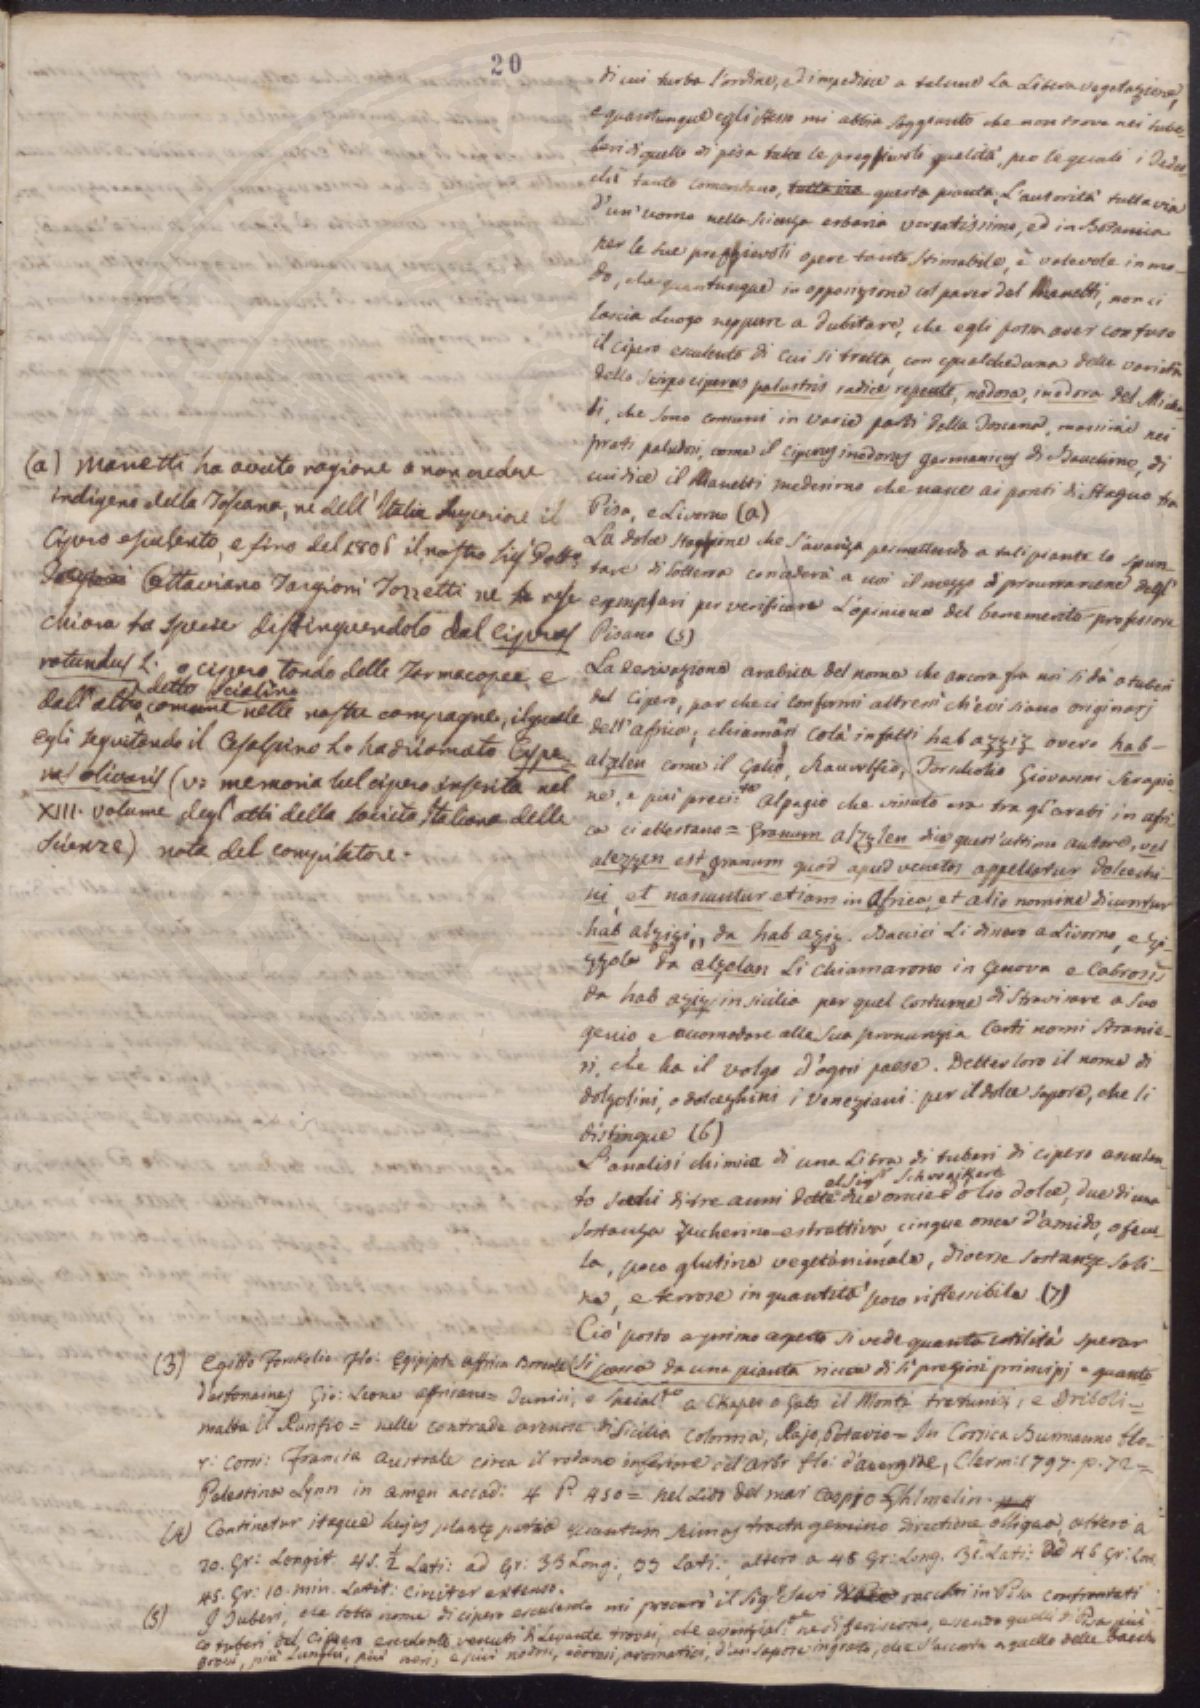 20
di cui turba l'ordine, ed impedisce a talune la Libera vegetazione,
e quantunque egli stesso mi abbia soggiunto che non trova nei tube-
beri di quello di pisa tutte le pregievoli qualità, per le quali i
tanto comendano, tutta via questa pianta; L'autorità tutta via
d'un'uomo nella scienza erbaria versatissimo, ed in Botanica
per le sue pregievoli opere tanto stimabile, è valevole in mo-
do, che quantunque in opposizione col parer del Manetti, non ci
lascia Luogo neppure a dubitare, che egli possa aver confuso
il cipero esculento di cui si tratta, con qualcheduna delle varietà
dello scirpo ciperus palustris radice repente, nodosa, inodora del Miche-
li, che sono comuni in varie parti della Toscana, massime nei
prati paludosi, come il Ciperus inodorus germanicus di Bauchino, di
cui dice il Manetti medesimo che nasce ai ponti di Stagno tra
Pisa, e Livorno (a)
La dolce stagione che s'avanza permettendo a tali piante lo spun-
tare di sotterra concederà a noi il mezzo di procurarcene degl'
esemplari per verificare l'opinione del benemerito professore
Pisano (5)
La derivazione arabica del nome che ancora fra noi si dà a tuberi
del Cipero, par che ci confermi altresì ch'evi siano originarj
dell'africa; chiamàn colà infatti hab azziz overo hab-
alzelen come il Golio, Rauwolfio, Forskolio Giovanni Serapio
ne, e più precis.te Alpagio che vissuto era tra gl'arabi in afri
ca ci attestano = Granum alzzlen dice quest'ultimo autore, vel
alezzen est granum quod apud venetos appellatur dolcechi
ni, et nascuntur etiam in Africa, et alio nomine dicuntur
hab alzizi,, da hab aziz. Baccici li dissero a Livorno, e Zi-
zzola da alzelan Li chiamarono in Genova e Cabrosis
da hab aziz in sicilia per quel costume di stravisare a suo
genio, e accomodare alla sua pronunzia Certi nomi stranie-
ri, che ha il volgo d'ogni paese. Dettes loro il nome di
dolzolini, o dolceghini i Veneziani: per il dolce sapore, che li
distingue (6)
L'analisi chimica di una Libra di tuberi di cipero esculen-
al Sig.r
to sechi di tre anni dette due oncie d'olio dolce, due di una
sostanza zucherino-estrattiva, cinque once d'amido, o fecu-
la, poco glutine vegetànimale, diverse sostanze sali-
ne, e terrose in quantità poco riflessibile (7)
Ciò posto a primo aspetto si vede quanta utilità sperar
si possa da una pianta ricca di sì pregioni principj e quanto
(a) Manetti ha avuto ragione a non credere
indigeno della Toscana, ne dell'Italia Superiore il
Cipero esculento, e fino del 1806 il nostro Sig.r Dott.
Ottaviano Targioni Tozzetti ne rese
chiara la specie distinguendolo dal Ciperus
rotundus L. o cipero tondo delle Farmacopee, e
detto Scialino
dall'altro comune nelle nostre campagne, il quale
egli seguitando il Cesalpino Lo ha chiamato Cype-
rus olivaris (V: memoria sul cipero inserita nel
XIII. volume degl'atti della società Italiana delle
Scienze) nota del compilatore.
(3) Egitto Forskolio Flo: Egipipt: affrica Boreale
Desfontaines Gio: Leone affricano = Tunisi, e
malta il = nelle contrade arenose di Sicilia Colonna, Rajo, Petavio = In Corsica Burmanno flo-
r: Corsi: Francia australe circa il rodano inferiore
Palestina Lynn in amen accad: 4 P. 450 = nel Lido del mar Caspio Ghimelin.
(4) Continetur itaque hujus plantę patria
20. Gr: Longit. 45. 1/2 Lati: ad Gr: 33 Long: 33 Lati:, altero a 48 Gr: Long.
45. Gr: 10. min. Latit: circiter extenso.
(5) I Tuberi, che sotto nome di cipero esculento mi procurò il Sig.r Savi raccolti in Pisa confrontati
co tuberi del Cipero esculento venuti di Levante trovai, che ne diferiscono, essendo quelli di Pisa più
grossi, più Lunghi, più neri, e più nodosi, odorosi, aromatici, d'un sapore ingrato, che s'accosta a quello delle bacche